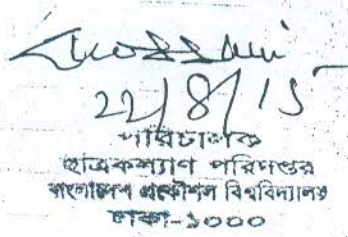 22/8/15
পরিচালক
ছাত্রকল্যাণ পরিদপ্তর
বাংলাদেশ প্রকৌশল বিশ্ববিদ্যালয়
ঢাকা-১০০০